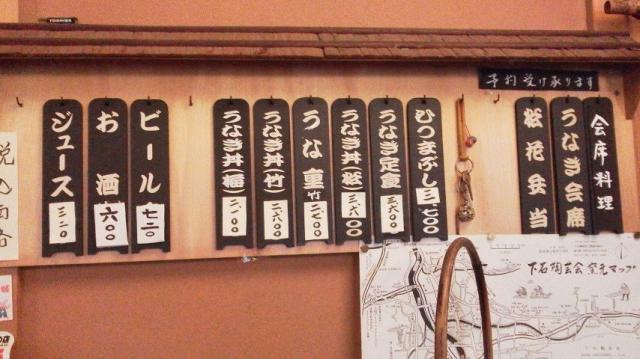 TOSHIBA
予約受け承ります
会席料理
うなぎ会席
松花弁当
ひつまぶし 三、七〇〇
うなぎ定食 三、六〇〇
うなぎ丼(松) 三、六〇〇
うな重竹 二、七〇〇
うなぎ丼(竹) 二、六〇〇
うなぎ丼(梅) 二、一〇〇
ビール 七二〇
お酒 六〇〇
ジュース 三二〇
下石陶芸会 窯元マップ